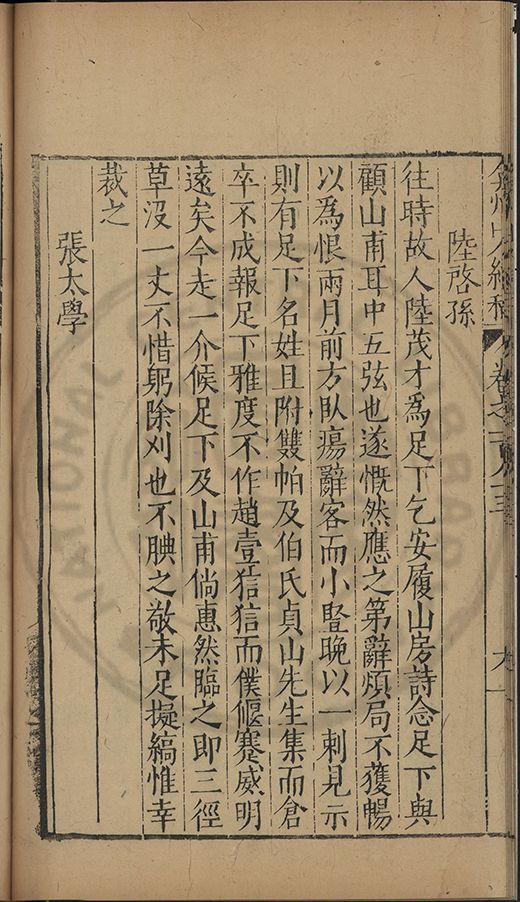 陸啓孫
往時故人陸茂才爲足下乞安履山房詩念足下與
顧山甫耳中五弦也遂慨然應之第辭煩局不獲暢
以爲恨兩月前方臥瘍辭客而小豎晚以一刺見示
則有足下名姓且附雙帕及伯氏貞山先生集而倉
卒不成報足下雅度不作趙壹狺狺而僕偃蹇威明
遠矣今走一介候足下及山甫倘惠然臨之即三徑
草沒一丈不惜躬除刈也不腆之敬未足擬縞惟幸
裁之
張太學